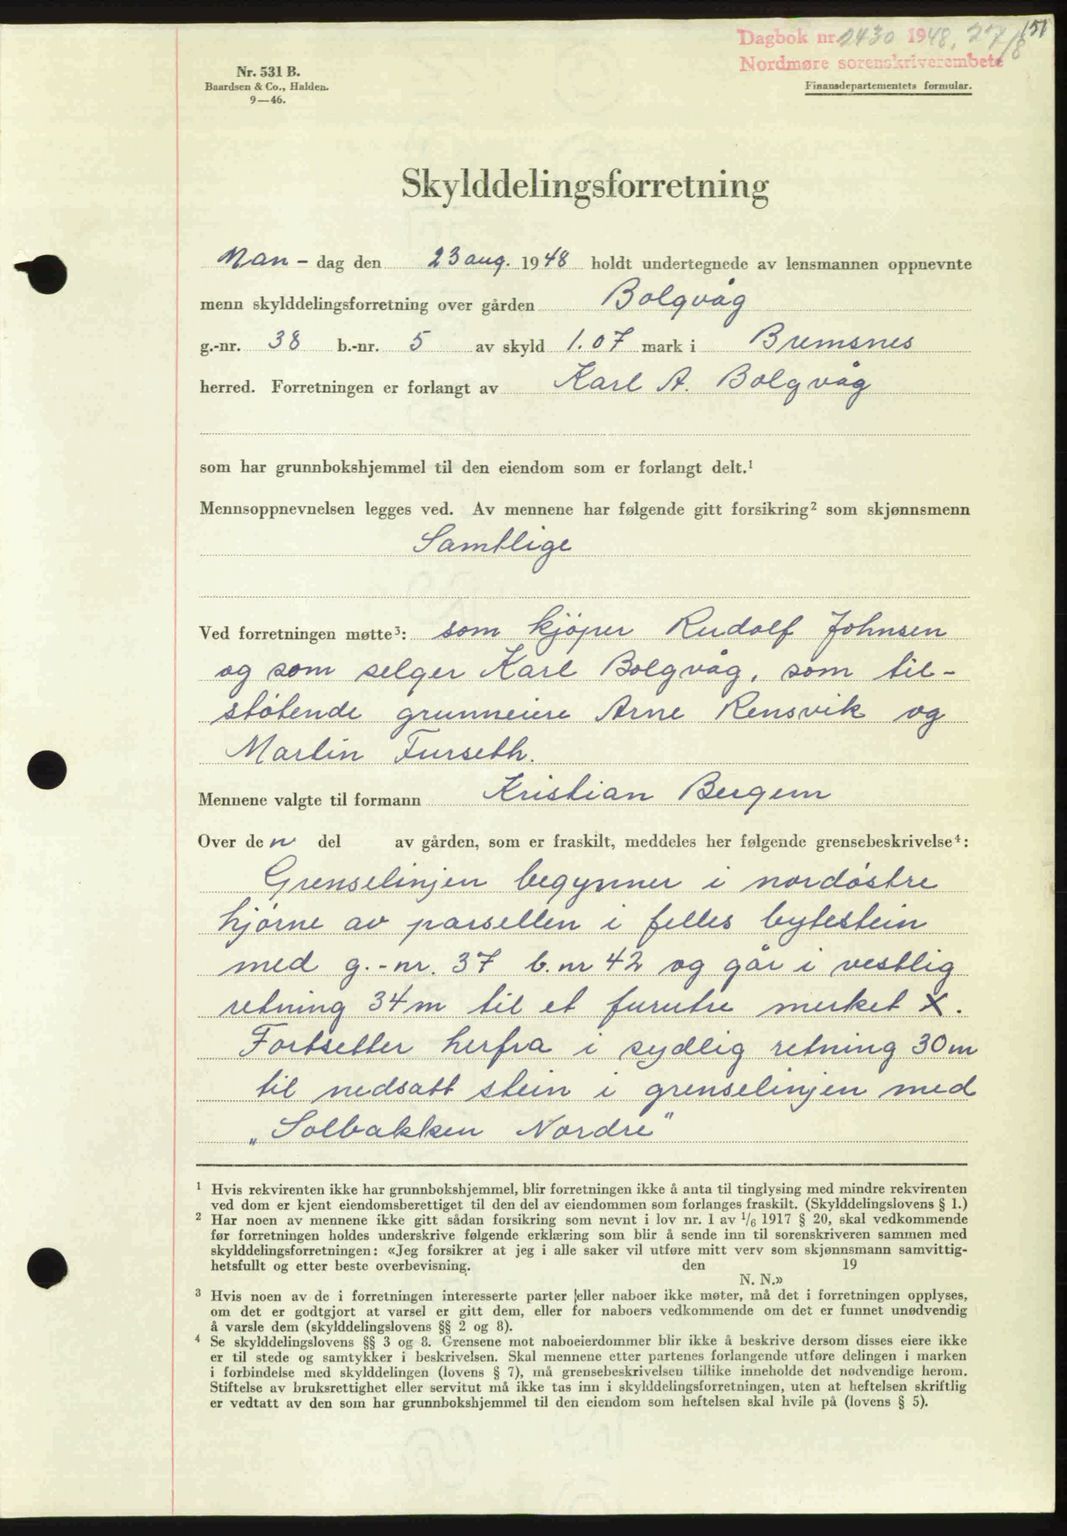 151
Dagbok nr. 2430 1948. 27/8
Nordmøre sorenskriverembete
Nr. 531 B.
Baardsen & Co., Halden.
9—46.
Finansdepartementets formular.
Skylddelingsforretning
Man- dag den 23 aug. 1948 holdt undertegnede av lensmannen oppnevnte
menn skylddelingsforretning over gården Bolgvåg
g.-nr. 38 b.-nr. 5 av skyld 1.07 mark i Bremsnes
herred. Forretningen er forlangt av Karl A. Bolgvåg
som har grunnbokshjemmel til den eiendom som er forlangt delt.¹
Mennsoppnevnelsen legges ved. Av mennene har følgende gitt forsikring² som skjønnsmenn
Samtlige
Ved forretningen møtte³: som kjöper Rudolf Johnsen
og som selger Karl Bolgvåg, som til-
stötende grunneiere Arne Rensvik og
Martin Furseth.
Mennene valgte til formann Kristian Bergem
Over den del av gården, som er fraskilt, meddeles her følgende grensebeskrivelse⁴:
Grenselinjen begynner i nordöstre
hjörne av parsellen i felles bytestein
med g.-nr. 37 b.nr 42 og går i vestlig
retning 34m til et furutre merket X.
Fortsetter herfra i sydlig retning 30m
til nedsatt stein i grenselinjen med
„Solbakken Nordre"
¹ Hvis rekvirenten ikke har grunnbokshjemmel, blir forretningen ikke å anta til tinglysing med mindre rekvirenten
ved dom er kjent eiendomsberettiget til den del av eiendommen som forlanges fraskilt. (Skylddelingslovens § 1.)
² Har noen av mennene ikke gitt sådan forsikring som nevnt i lov nr. 1 av 1/6 1917 § 20, skal vedkommende
før forretningen holdes underskrive følgende erklæring som blir å sende inn til sorenskriveren sammen med
skylddelingsforretningen: «Jeg forsikrer at jeg i alle saker vil utføre mitt verv som skjønnsmann samvittig-
hetsfullt og etter beste overbevisning. den 19
N. N.»
³ Hvis noen av de i forretningen interesserte parter eller naboer ikke møter, må det i forretningen opplyses,
om det er godtgjort at varsel er gitt dem, eller for naboers vedkommende om det er funnet unødvendig
å varsle dem (skylddelingslovens §§ 2 og 8).
⁴ Se skylddelingslovens §§ 3 og 8. Grensene mot naboeierdommer blir ikke å beskrive dersom disses eiere ikke
er til stede og samtykker i beskrivelsen. Skal mennene etter partenes forlangende utføre delingen i marken
i forbindelse med skylddelingen (lovens § 7), må grensebeskrivelsen tillike inneholde det nødvendige herom.
Stiftelse av bruksrettighet eller servitut må ikke tas inn i skylddelingsforretningen, uten at heftelsen skriftlig
er vedtatt av den som har grunnbokshjemmel til den eiendom som heftelsen skal hvile på (lovens § 5).